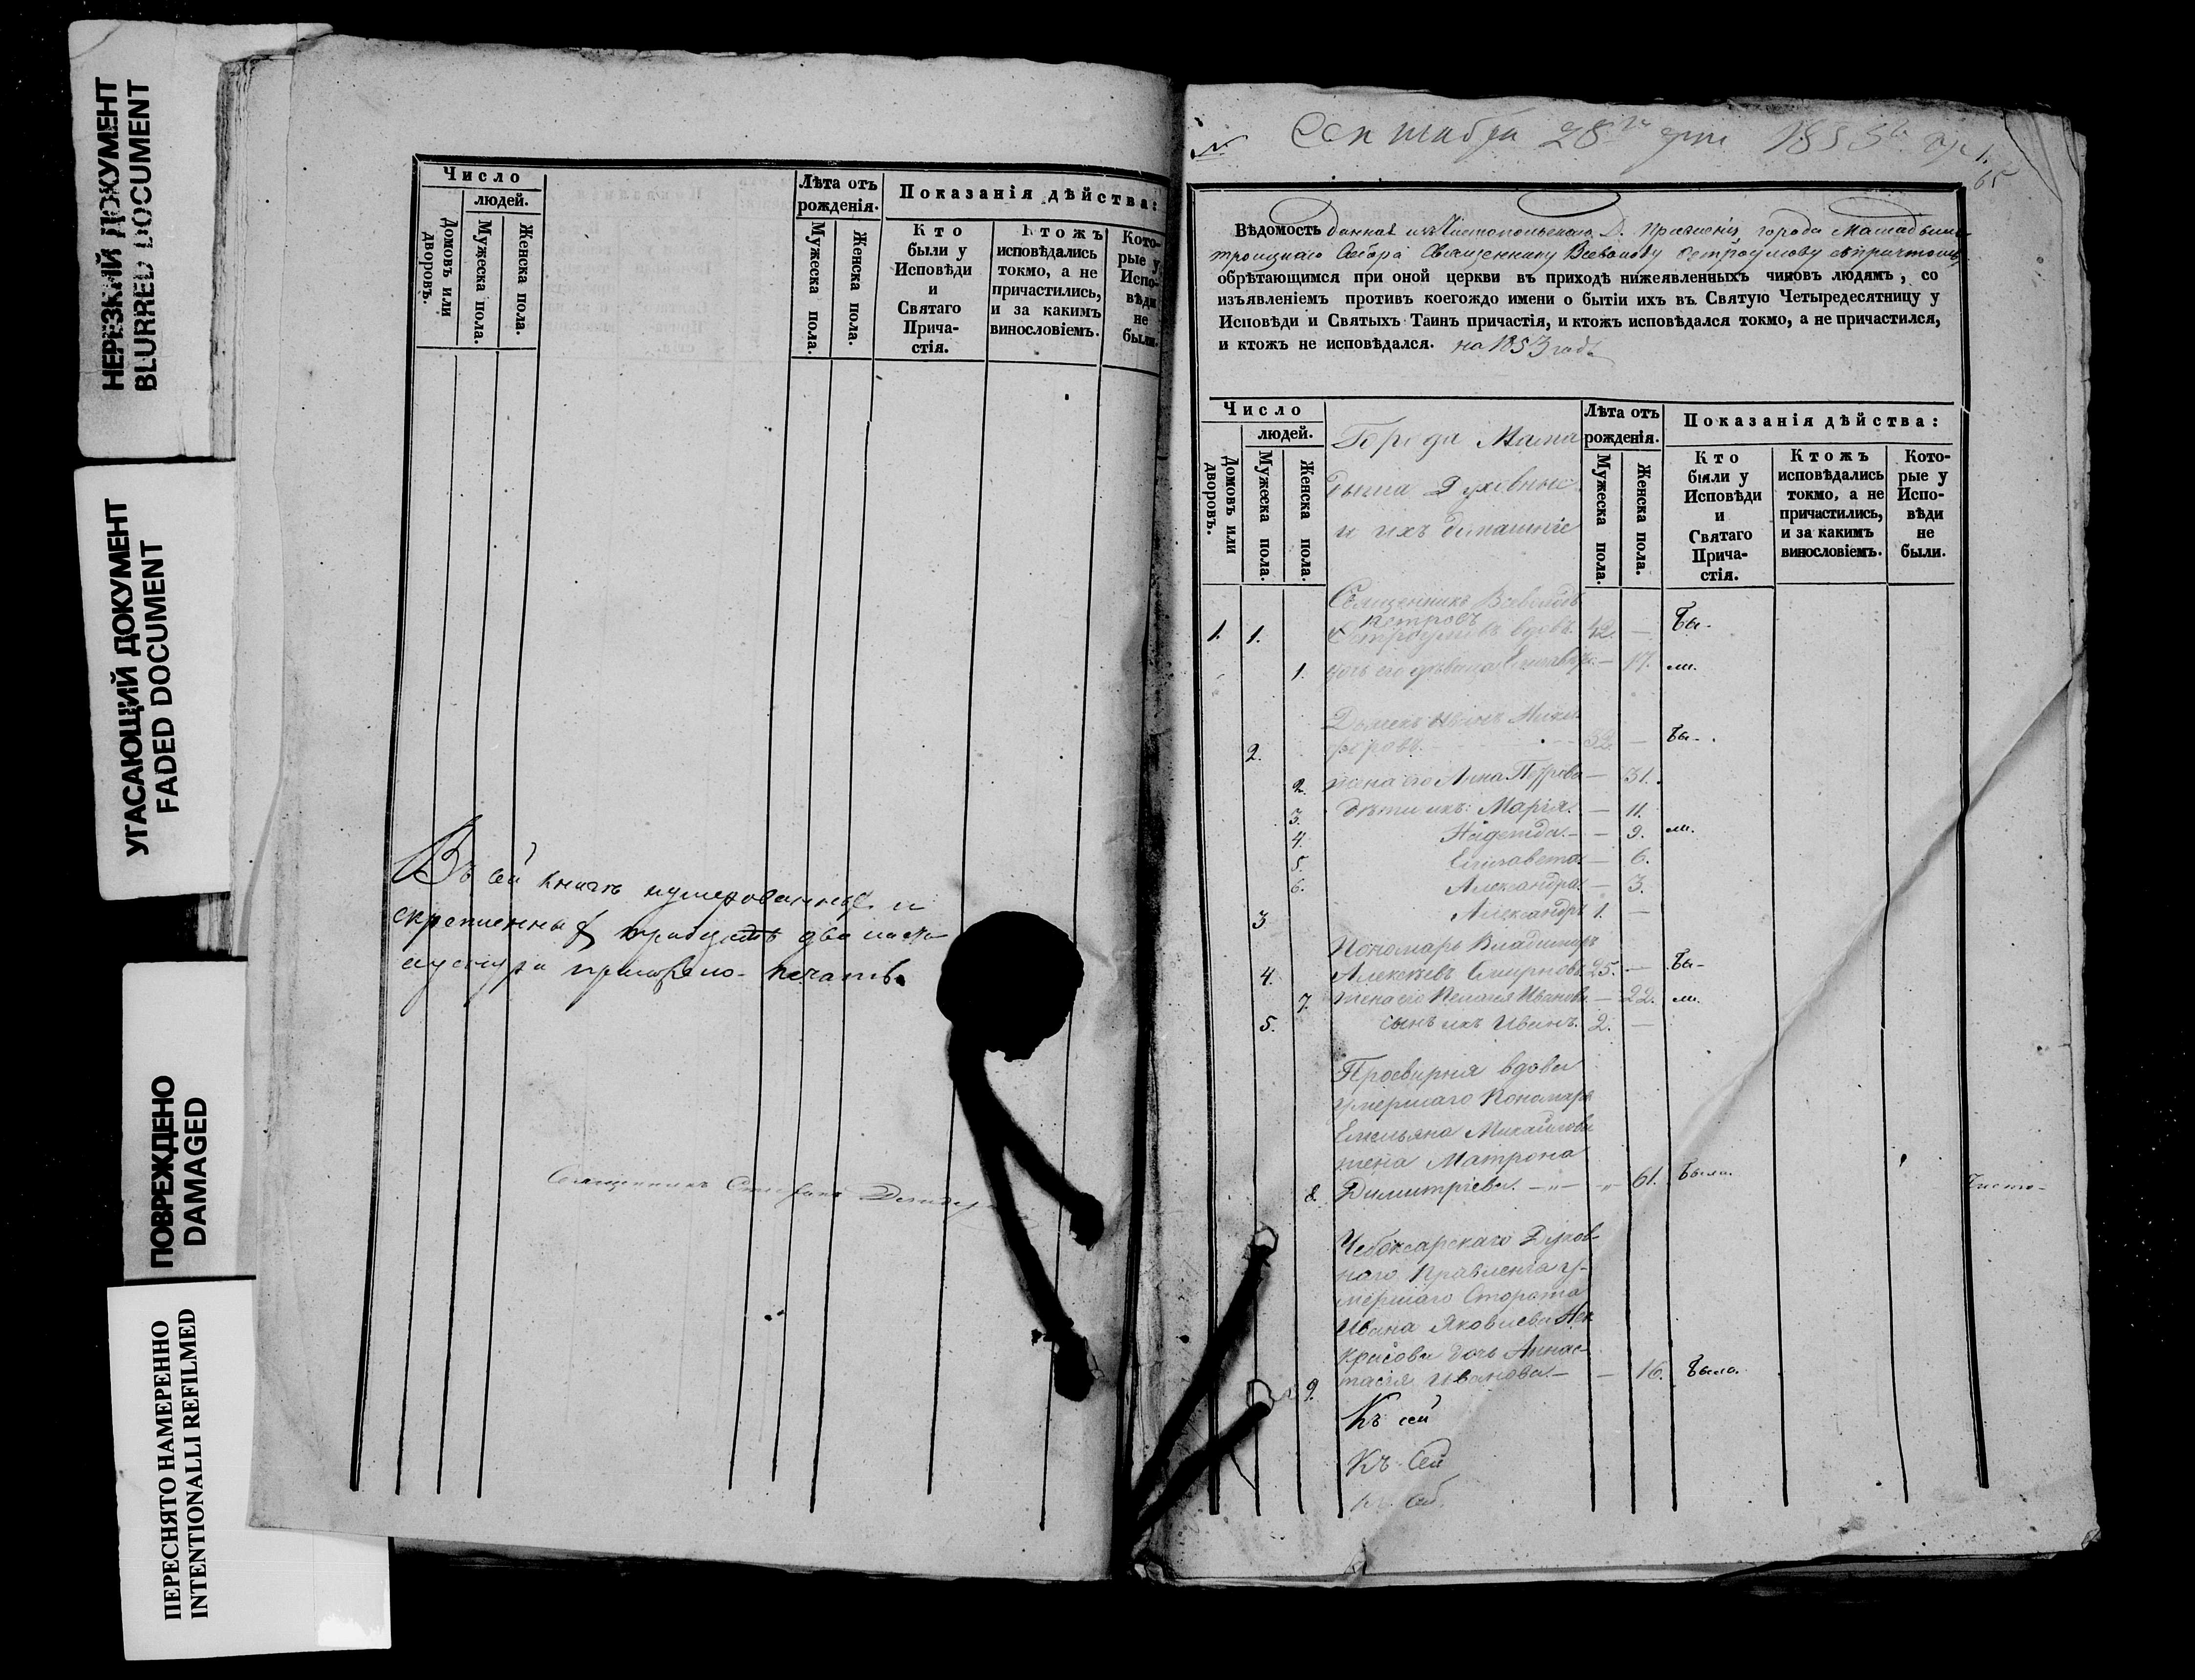 НЕРЕЗКИЙ ДОКУМЕНТ
BLURRED DOCUMENT
УГАСАЮЩИЙ ДОКУМЕНТ
FADED DOCUMENT
ПОВРЕЖДЕНО
DAMAGED
ПЕРЕСНЯТО НАМЕРЕННО
INTENTIONALLI REFILMED
Число
людей.
Домовъ или дворовъ.
Мужеска пола.
Женска пола.
Лѣта отъ
рожденія.
Мужеска пола.
Женска пола.
Показанія дѣйства:
Кто
были у
Исповѣди
и
Святаго
Прича-
стія.
Ктожъ
исповѣдались
токмо, а не
причастились,
и за какимъ
винословіемъ.
Кото-
рые у
Испо-
вѣди
не
были.
Въ сей книгѣ нумерованныхъ и
скрепленныхъ тридцать два листа
печать.
Священникъ
№
Сентября 28го дня
1.
65
Вѣдомость данная изъ Чистопольскаго Д. Правленія города Мамадыша
троицкаго Собора Священнику Всеволоду Остроумову съ причтомъ
обрѣтающимся при оной церкви въ приходѣ нижеявленныхъ чиновъ людямъ, со
изъявленіемъ противъ коегождо имени о бытіи ихъ въ Святую Четыредесятницу у
Исповѣди и Святыхъ Таинъ причастія, и ктожъ исповѣдался токмо, а не причастился,
и ктожъ не исповѣдался. на 1853 годъ
Число
людей.
Домовъ или дворовъ.
Мужеска пола.
Женска пола.
Города Мама
дыша Духовные
и ихъ домашніе
Лѣта отъ
рожденія.
Мужеска пола.
Женска пола.
Показанія дѣйства:
Кто
были у
Исповѣди
и
Святаго
Прича-
стія.
Ктожъ
исповѣдались
токмо, а не
причастились,
и за какимъ
винословіемъ.
Кото-
рые у
Испо-
вѣди
не
были.
Священникъ Всеволодъ
Петровъ
1. 1. Остроумовъ вдовъ 42. — Бы-
1. дочь его дѣвица Елизавета — 17. ли.
Дьяконъ Иванъ Ники
2. форовъ. 32. — Бы-
2. жена его Анна Петрова — 31.
3. дѣти ихъ: Марія. — 11.
4. Надежда. — 9. ли.
5. Елизавета — 6.
6. Александра — 3.
3. Александръ 1. —
Пономарь Владимиръ
4. Алексѣевъ Смирновъ 25. — Бы-
7. жена его Пелагея Иванова — 22. ли.
5. сынъ ихъ Иванъ. 2. —
Просвирня вдова
умершаго Пономаря
Емельяна Михайлова
жена Матрона
8. Димитріева. — 61. Была.
Чисто-
Чебоксарскаго Духов-
наго Правленія у-
мершаго Сторожа
Ивана Яковлева Не-
красова дочь Аннас-
9. тасія Иванова — — 16. Была.
Къ сей
Къ Сей